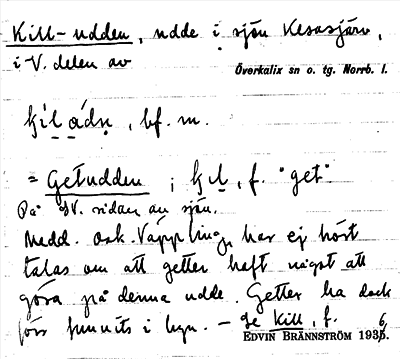 Kill-udden, udde i sjön Kesasjärv,
i V. delen av
Överkalix sn o. tg. Norrb. l.
kil ádn, bf. m.
= Getudden; kil, f. "get"
På SV. sidan av sjön.
Medd. Osk. Väppling, har ej hört
talas om att getter haft något att
göra på denna udde. Getter ha dock
förr funnits i byn. – Se Kill, f.
EDVIN BRÄNNSTRÖM 1936.